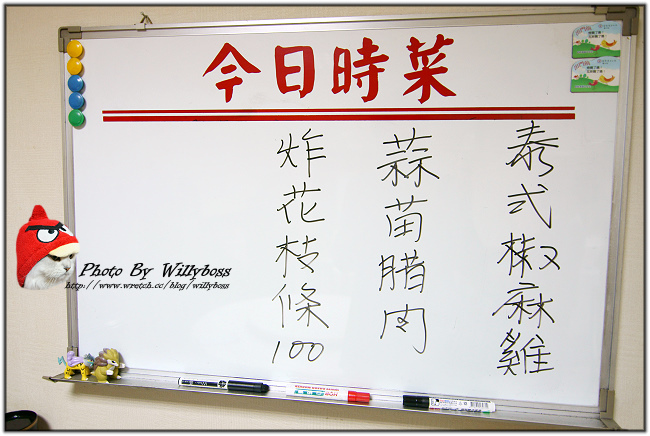 今日時菜
泰式椒麻雞
蒜苗腊肉
炸花枝條
100
Photo By Willyboss
http://www.wretch.cc/blog/willyboss